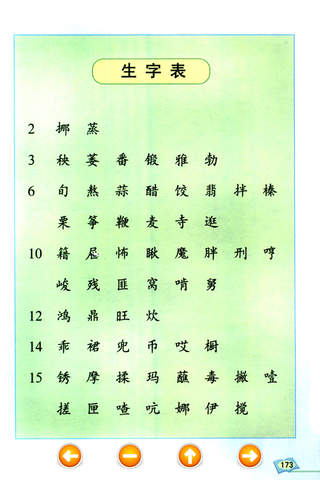 生字表
2 挪 蒸
3 秧 萎 番 锻 雅 勃
6 旬 熬 蒜 醋 饺 翡 拌 榛
栗 筝 鞭 麦 寺 逛
10 籍 怖 瞅 魔 胖 刑 哼
峻 残 匪 窝 啃 舅
12 鸿 鼎 旺 炊
14 乖 裙 兜 币 哎 橱
15 锈 摩 揉 玛 蘸 毒 撇 噎
搓 匣 喳 吭 娜 伊 揽
173